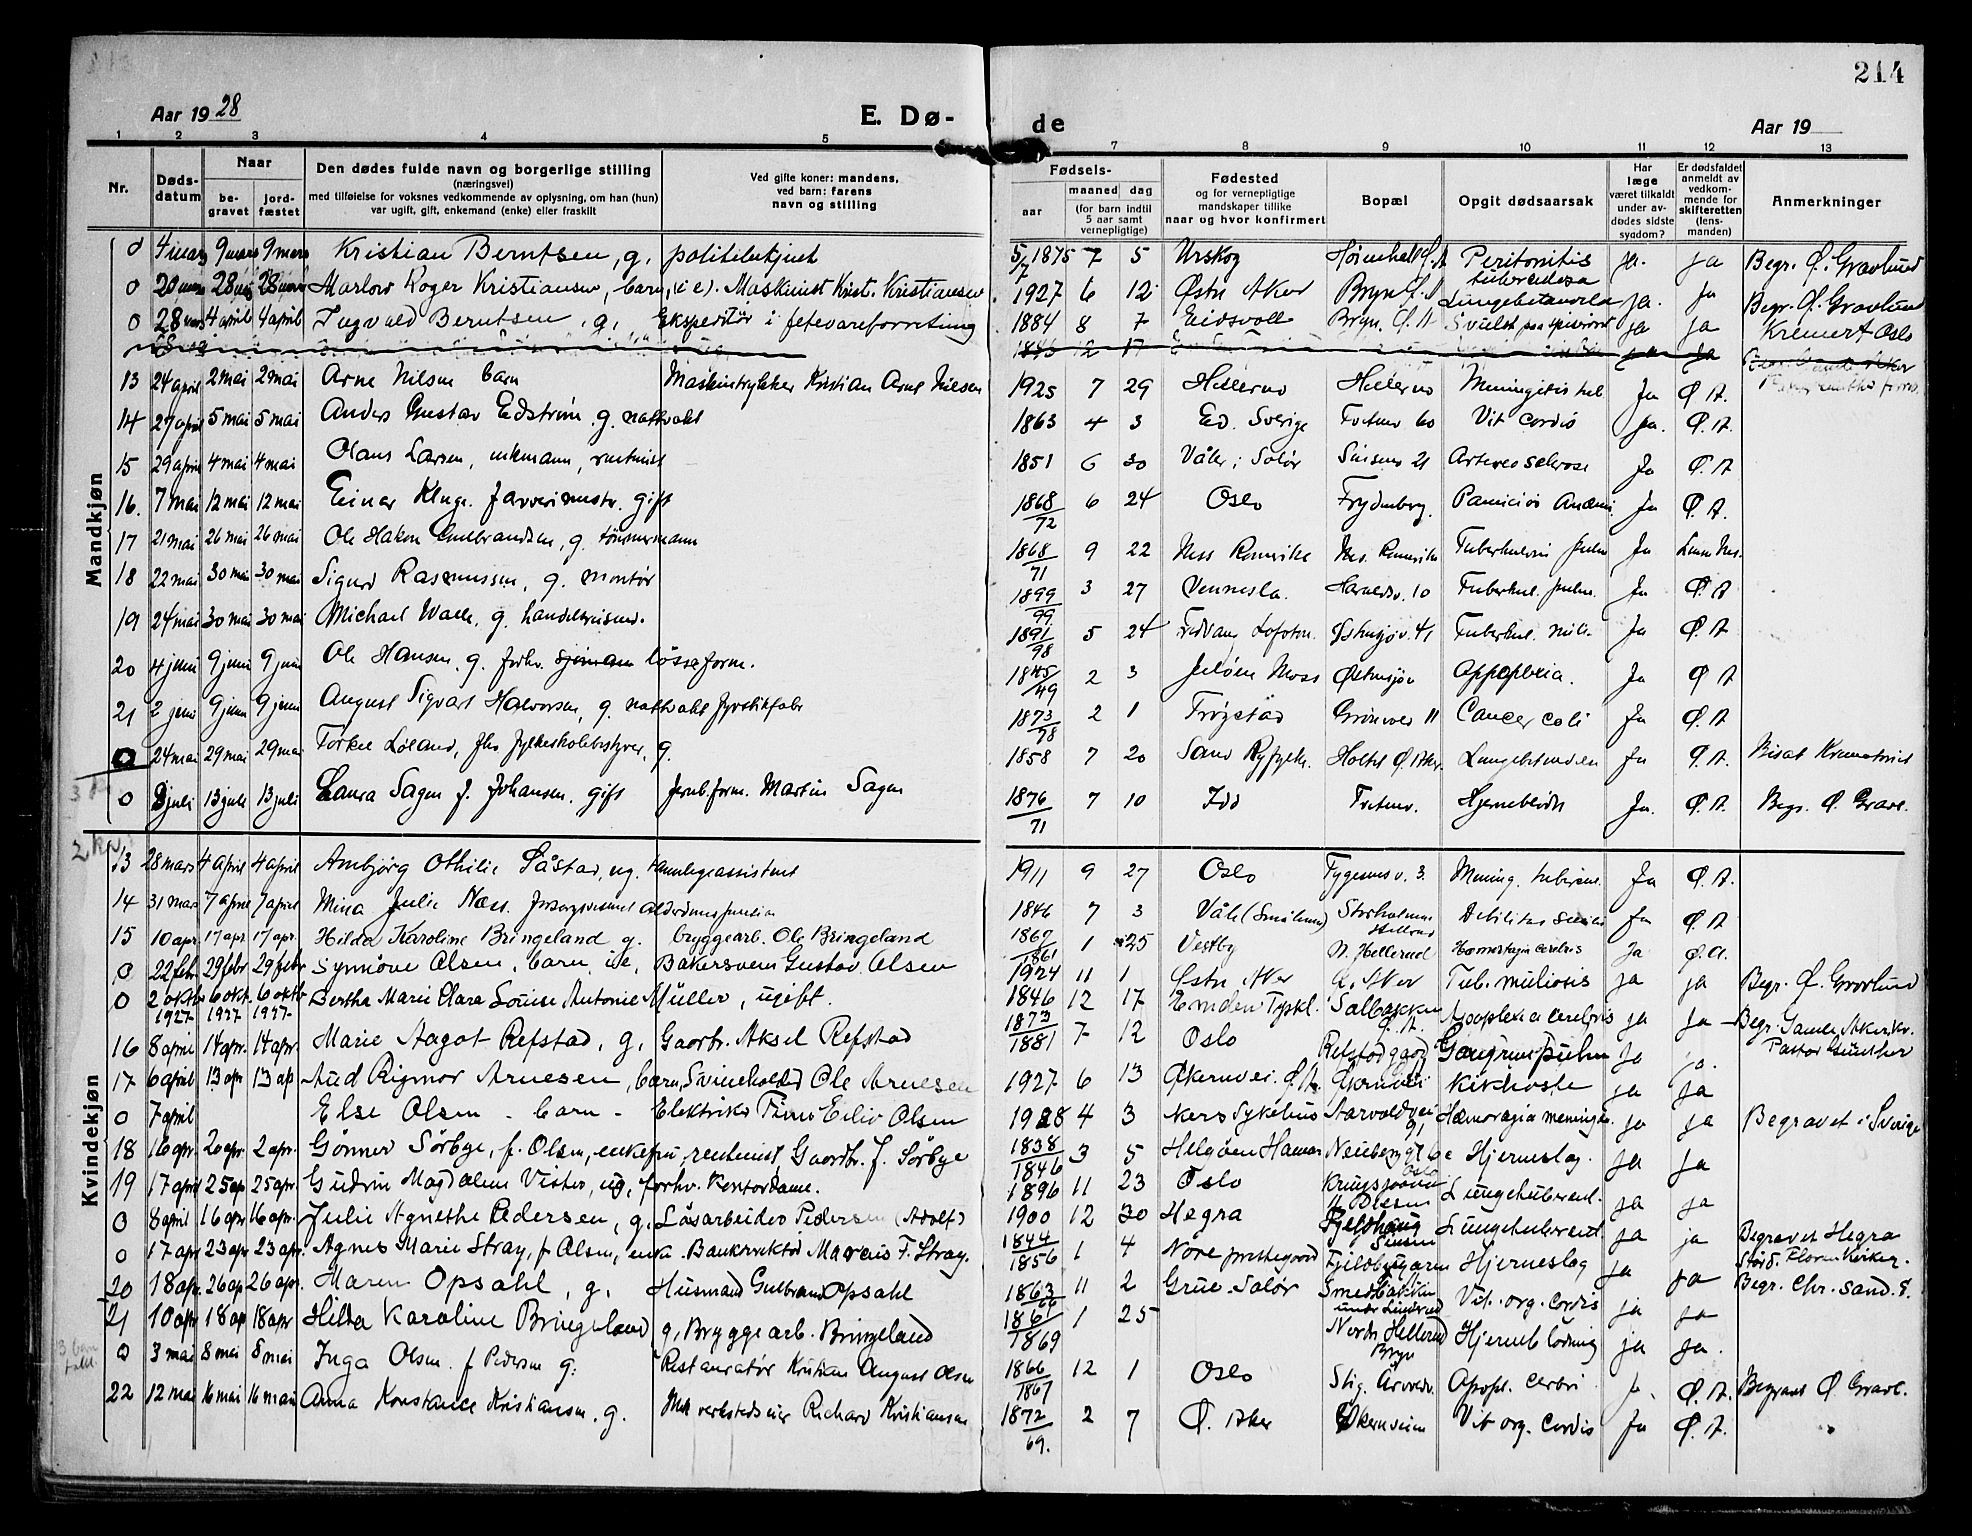 214
Aar 1928
E. Dø-
de
Aar 19
1 2 3 4 5 7 8 9 10 11 12 13
Nr.
Døds-
datum
Naar
be-
gravet
jord-
fæstet
Den dødes fulde navn og borgerlige stilling
(næringsvei)
med tilføielse for voksnes vedkommende av oplysning, om han (hun)
var ugift, gift, enkemand (enke) eller fraskilt
Ved gifte koner: mandens,
ved barn: farens
navn og stilling
Fødsels-
aar
maaned dag
(for barn indtil
5 aar samt
vernepligtige)
Fødested
og for vernepligtige
mandskaper tillike
naar og hvor konfirmert
Bopæl
Opgit dødsaarsak
Har
læge
været tilkaldt
under av-
dødes sidste
sygdom?
Er dødsfaldet
anmeldt av
vedkom-
mende for
skifteretten
(lens-
manden)
Anmerkninger
Mandkjøn
0 4 mars 9 mars 9 mars Kristian Berntsen, g., politibetjent 5/7 1875 7 5 Urskog Peritonitis tuberculosa ja. ja Begr. Ø. Gravlund
0 20 mars 28 mars 28 mars Harlow Roger Kristiansen, barn, (i e). Maskinist Krist. Kristiansen 1927 6 12 Østre Aker Bryn Ø. A Lungebetændelse ja. ja Begr. Ø. Gravlund
0 28 mars 4 april 4 april Ingvald Berntsen, g., Ekspeditør i fetevareforretning 1884 8 7 Eidsvoll Bryn. Ø. A Svulst paa spiserør ja ja Kremert Oslo
13 24 april 2 mai 2 mai Arne Nilsen barn Maskintrykker Kristian Arnt Nilsen 1925 7 29 Hellerud Hellerud Meningitis tub. Ja Ø. A.
14 27 april 5 mai 5 mai Anders Gustav Edstrøm. g. nattvakt 1863 4 3 Ed. Sverige Tvetenv 60 Vit cordis Ja. Ø. A.
15 29 april 4 mai 4 mai Olaus Larsen, enkemann, rentenist 1851 6 30 Våler i Solør Sinsenv 21 Arterio sclerose Ja Ø. A
16. 7 mai 12 mai 12 mai Einar Kluge. farverimestr. gift 1868/72 6 24 Oslo Frydenberg. Perniciøs Anæmi. Ja Ø. A.
17 21 mai 26 mai 26 mai Ole Hakon Gulbrandsen, g. tømmermann 1868/71 9 22 Nes Romerike Nes. Romerike Tuberkulosis pulm Ja Lensm. Nes.
18 22 mai 30 mai 30 mai Sigurd Rasmussen, g. montør 1899/99. 3 27 Vennesla. Haraldsv. 10 Tuberkul. pulm. Ja Ø. A
19 24 mai 30 mai 30 mai Michael Walle, g. handelsreisend. 1891/98 5 24 Lofoten. Østensjøv. 41 Tuberkul. mili. Ja Ø. A
20 4 juni 9 juni 9 juni Ole Hansen, g. forhv. sjömann lösseform. 1845/49 2 3 Jeløen Moss Østensjøv Appoplexia. Ja Ø A
21 2 juni 9 juni 9 juni August Sigvart Halvorsen, g. nattvakt fyrstikfabr 1873/78 2 1 Trøgstad Grønvoll 11 Cancer coli Ja Ø. A
0 24 mai 29 mai 29 mai Torkel Løland, fhv fylkesskolebestyrer, g. 1858 7 20 Sand Ryfylke. Holtet Ø. Aker. Lungebetendelse Ja Ø. A. Bisat Krematoriet
0 8 juli 13 juli 13 juli Laura Sagen f. Johansen. gift Jernb.form. Martin Sagen 1876/71 7 10 Idd Tvetenv. Hjerneblødn Ja. Ø. A. Begr. Ø. Gravl.
Kvindekjøn
13 28 mars 4 april 4 april Ambjørg Othilie Såstad, ug. tannlegeassistent 1911 9 27 Oslo Trygesensv. 3. Mening. tubercul. Ja Ø. A.
14 31 mars 7 april 7 april Mina Julie Næss. Alderdomspension 1846 7 3 Våle (Småland) Debilitas senilis Ja Ø. A
15 10 apr. 17 apr 17 apr. Hilda Karoline Bringeland g. bryggearb. Ole Bringeland 1869/1861 1 25 Vestby N. Hellerud Hæmorhagia cerebris Ja Ø. A.
0 22 febr 29 febr 29 febr Synnöve Olsen, barn, i e, Bakersvenn Gustav Olsen 1924 11 1 Østre Aker Ø. Aker Tub. miliaris ja ja Begr. Ø. Gravlund
0 2 oktbr 1927 6 okt. 1927 6 oktbr 1927 Bertha Marie Clara Louise Antonie Müller, ugift. 1846 12 17 Emden Tyskl. Solbakken Ø. A. Apoplexia cerebris ja Ja Begr. Gamle Aker kr. Pastor Günther
16 8 april 14 apr. 14 apr. Marie Aagot Refstad, g., Gaardbr. Aksel Refstad 1873/1881 7 12 Oslo Refstad gaard Gangræn pulm Ja ja.
17 6 april 13 apr 13 ap Aud Rigmor Arnesen, barn, Svineholder Ole Arnesen 1927 6 13 Økernvei. Ø. A. Økernvei Kikhoste ja Ja
0 7 april Else Olsen - barn - Elektriker Finn Eiliv Olsen 1928 4 3 Akers Sykehus Aarvoldvei 9, Hæmoragia mening. ja ja Begravet i Sverige
18 16 apr. 20 apr. 2 apr. Gönner Sörbye, f. Olsen, enkefru, rentenist, Gaardbr. J. Sörbye 1838/1846 3 5 Helgøen Hamar Neubergt 6 e Oslo Hjerneslag. ja Ja
19 17 april 25 ap 25 apr. Gudrun Magdalene Vister, ug, forhv. Kontordame. 1896 11 23 Oslo Lungetuberkul. ja ja
0 8 april 16 apr 16 apr. Julie Agnethe Pedersen, g. Låsarbeider Pedersen (Adolf) 1900 12 30 Hegra Fjeldhaug Sinsen Lungetuberkul ja ja Begravet Hegra
0 17 apr 23 apr 23 apr. Agnes Marie Stray, f Olsen, enke. Bankdirektør Marcus F. Stray. 1844/1856 1 4 Nore prestegaard Hjerneslag ja ja Begr. Chr. sand. S.
20 18 apr. 26 ap 26 apr. Maren Opsahl, g, Husmand Gulbrand Opsahl 1863/66 11 2 Grue Solør Vit. org. cordis ja ja
21 10 apr 18 ap 18 apr Hilda Karoline Bringeland g, Bryggearb. Bringeland 1861/1869 1 25 Nordr. Hellerud Bryn Hjerneblødning ja ja.
0 3 mai 8 mai 8 mai Inga Olsen. f Pedersen g: Restauratør Kristian August Olsen 1866/1867 12 1 Oslo Stig. Arvollv. Apopl. cerbri J. Ø. A. Begravet Ø. Gravl.
22 12 mai 16 mai 16 mai Anna Konstance Kristiansen, g. Mek verkstedseier Richard Kristiansen 1872/69. 2 7 Ø. Aker Økernveien Vit org. Cordis Ja Ø. A.